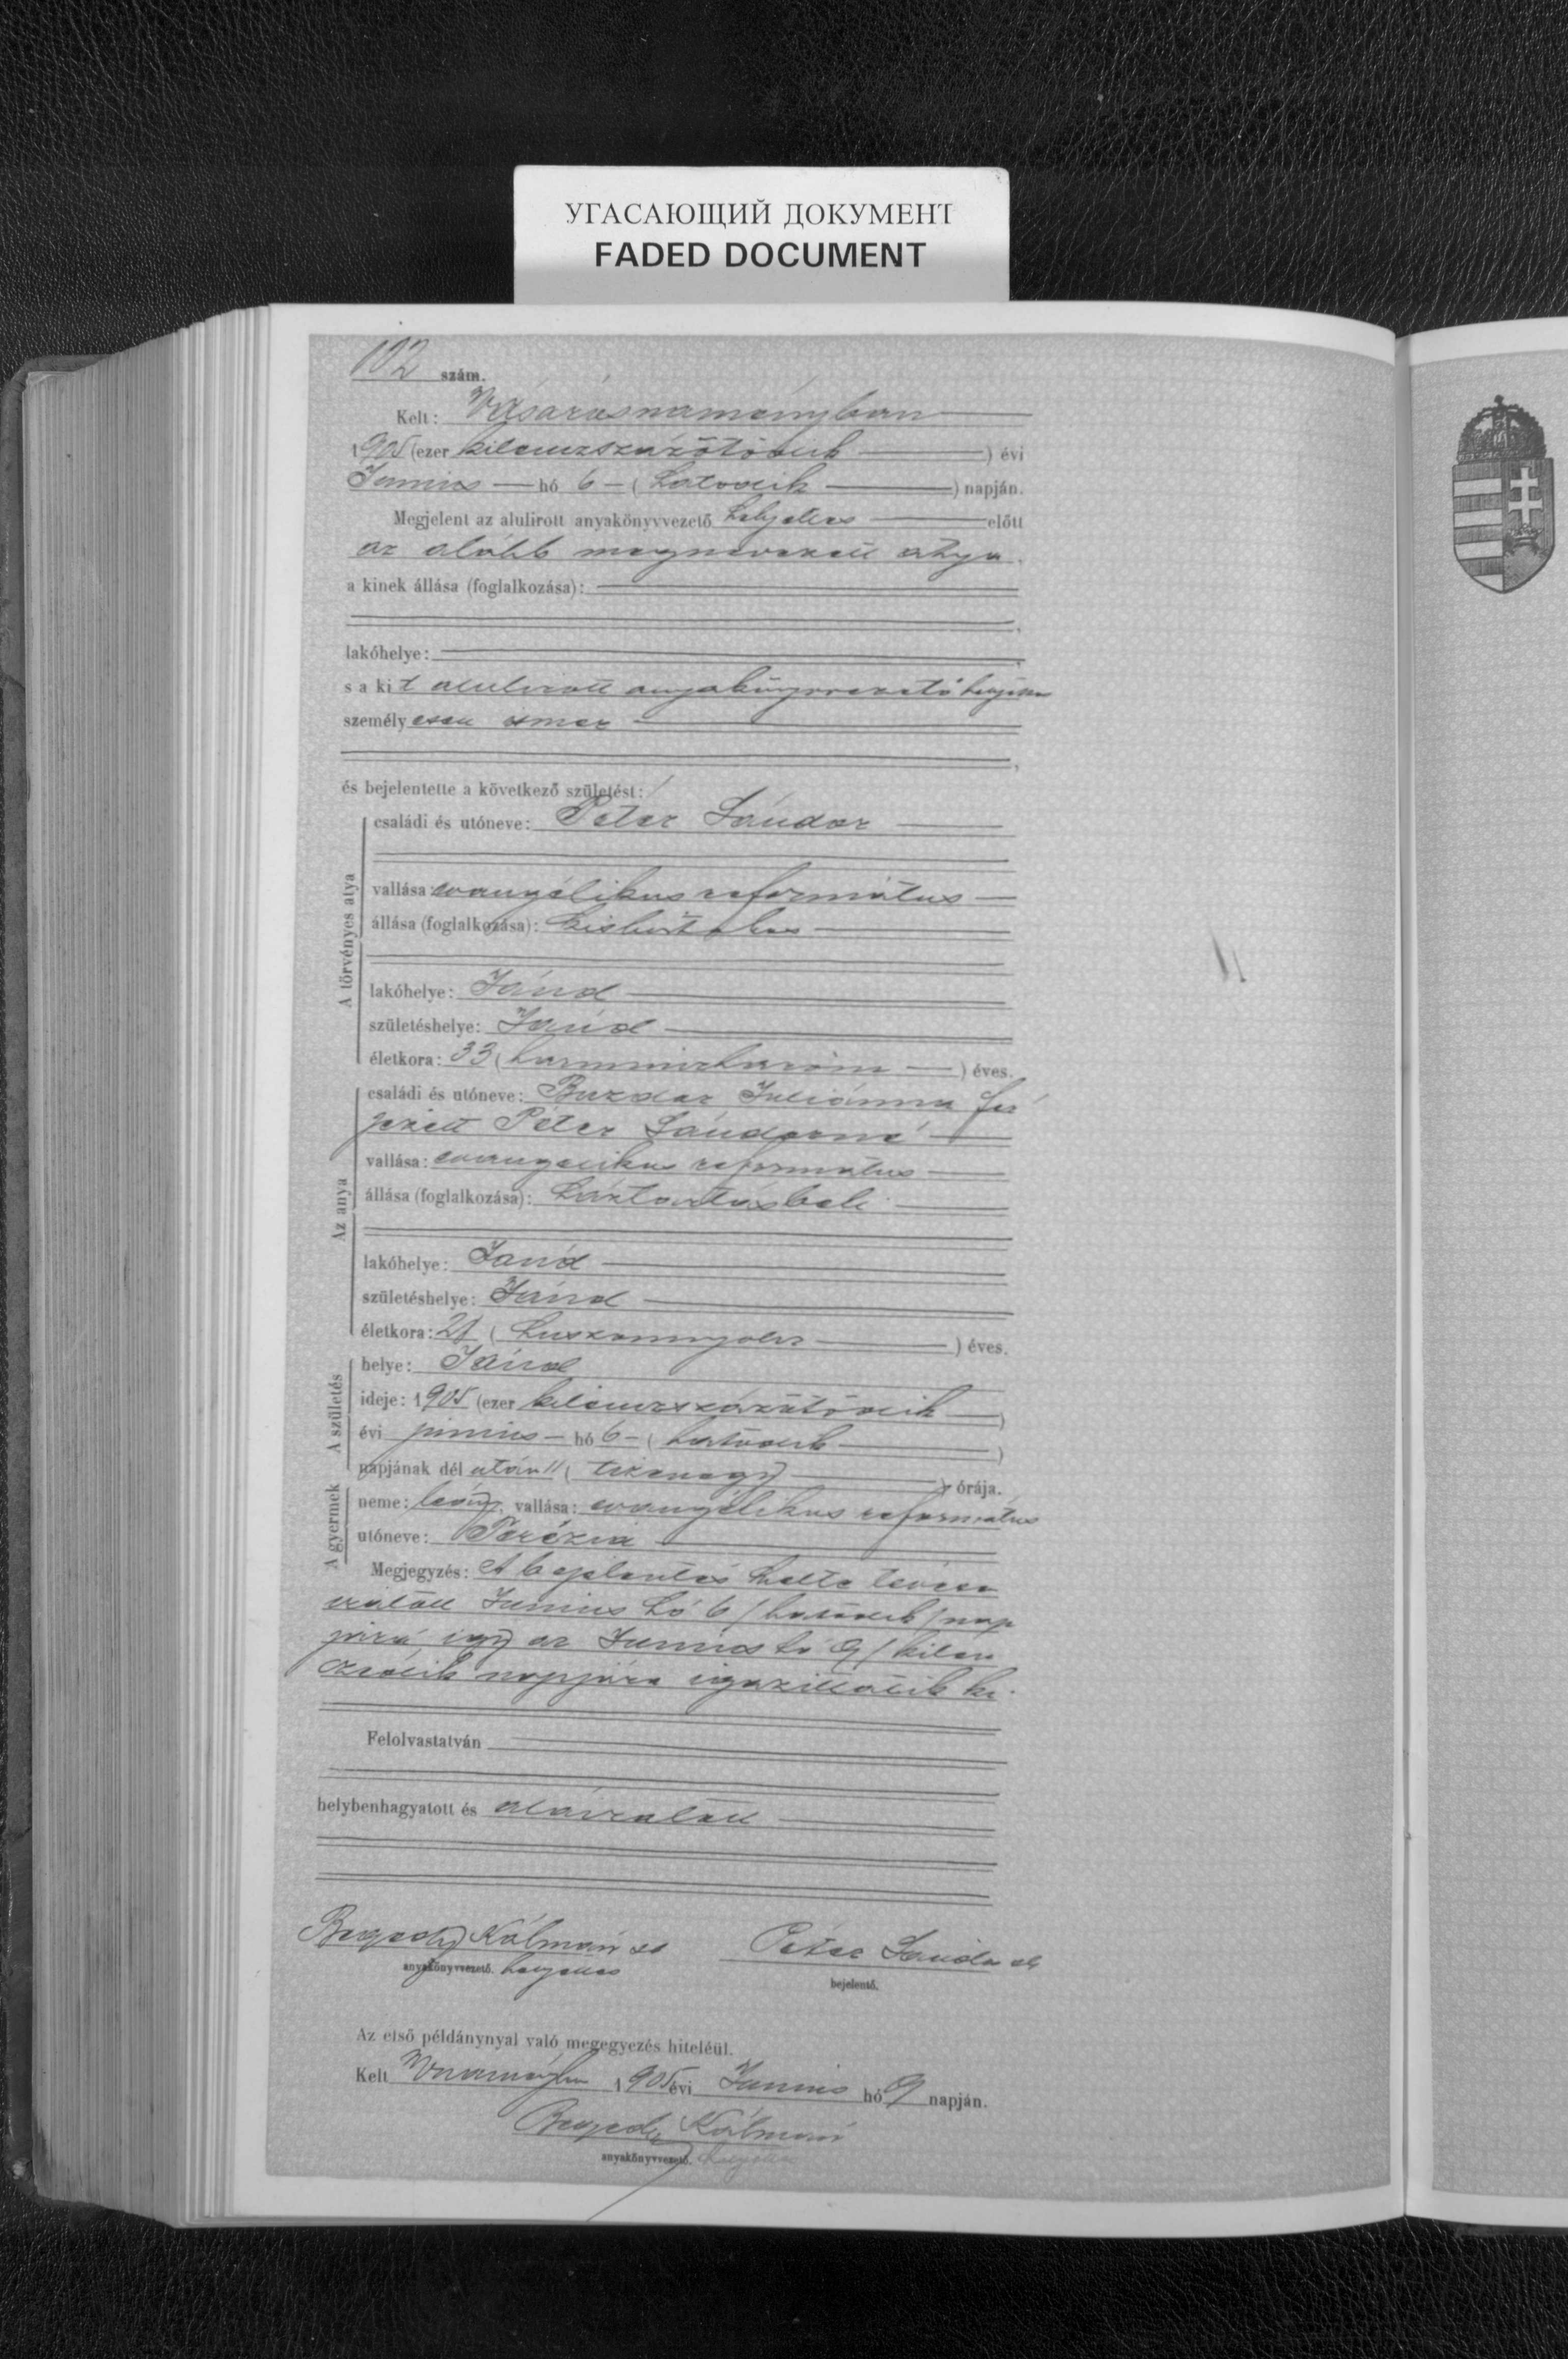 УГАСАЮЩИЙ ДОКУМЕНТ
FADED DOCUMENT
102 szám.
Kelt: Vásárosnaményban
1905 (ezer kilenczszázötödik ) évi
Junius hó 6 ( hatodik ) napján.
Megjelent az alulirott anyakönyvvezető helyettes előtt
az alább megnevezett atya.
a kinek állása (foglalkozása):
lakóhelye:
s a kit alulirott anyakönyvvezető helyettes
személyesen ismer
és bejelentette a következő születést:
A törvényes atya
családi és utóneve: Péter Sándor
vallása: evangélikus református
állása (foglalkozása): kisbirtokos
lakóhelye: Jánd
születéshelye: Jánd
életkora: 33 ( harminczhárom ) éves.
Az anya
családi és utóneve: Buzdor Juliánna fér
jezett Péter Sándorné
vallása: evangelikus református
állása (foglalkozása): háztartásbeli
lakóhelye: Jánd
születéshelye: Jánd
életkora: ( ) éves.
A születés
helye: Jánd
ideje: 1905 (ezer kilenczszázötödik )
évi junius hó 6 ( hatodik )
napjának dél után 11 ( tizenegy ) órája.
A gyermek
neme: leány, vallása: evangélikus református
utóneve: Terézia
Megjegyzés: A bejelentés kelte
Junius hó 6 / hatodik / nap
járó így az Junius hó 9 / kilen
czedik napjára igazittatik ki.
Felolvastatván
helybenhagyatott és aláiratott
Kálmán sk Péter Sándor sk
anyakönyvvezető. helyettes bejelentő.
Az első példánynyal való megegyezés hiteléül.
Kelt 1905 évi Junius hó 9 napján.
Kálmán
anyakönyvvezető. helyettes